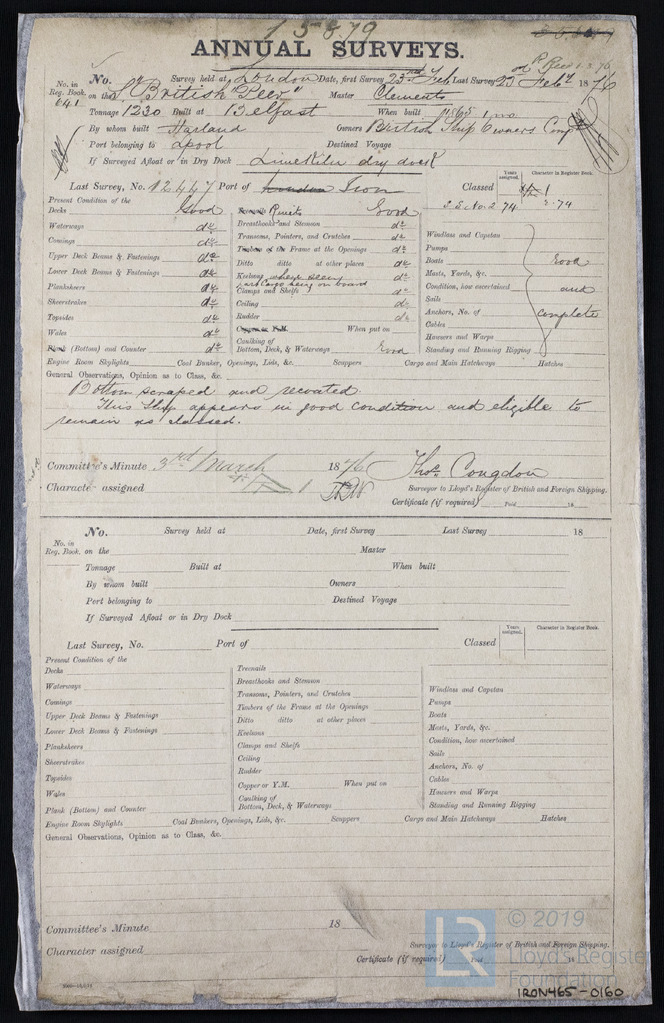 1 5 8 79
ANNUAL SURVEYS.
Recd 1.3.76
No. Survey held at London Date, first Survey 23rd Feb Last Survey 25 Feby 1876
No. in Reg. Book 641 on the Sr "British Peer" Master Clements
Tonnage 1230 Built at Belfast When built 1865 1 mo.
By whom built Harland Owners British Ship Owners Compy
Port belonging to Lpool Destined Voyage
If Surveyed Afloat or in Dry Dock Limekiln dry dock
Last Survey, No. 12447 Port of London Iron Classed
Years assigned. Character in Register Book.
A 1
S S No. 2 74 2.74
Present Condition of the
Decks Good
Waterways do
Comings do
Upper Deck Beams & Fastenings do
Lower Deck Beams & Fastenings do
Planksheers do
Sheerstrakes do
Topsides do
Wales do
Plank (Bottom) and Counter do
Treenails Rivets Good
Breasthooks and Stemson do
Transoms, Pointers, and Crutches do
Timbers of the Frame at the Openings do
Ditto ditto at other places do
Keelsons where seen do
part Cargo being on board
Clamps and Shelfs do
Ceiling do
Rudder do
Copper or Y.M. When put on
Caulking of
Bottom, Deck, & Waterways Good
Windlass and Capstan
Pumps
Boats Good
Masts, Yards, &c.
Condition, how ascertained and
Sails
Anchors, No. of complete
Cables
Hawsers and Warps
Standing and Running Rigging
Engine Room Skylights Coal Bunkers, Openings, Lids, &c. Scuppers Cargo and Main Hatchways Hatches
General Observations, Opinion as to Class, &c.
Bottom scraped and recoated.
This Ship appears in good condition and eligible to
remain as classed.
Committee's Minute 3rd March 1876 Thos. Congdon
Character assigned A 1 Surveyor to Lloyd's Register of British and Foreign Shipping.
Certificate (if required) Paid 18
No. Survey held at Date, first Survey Last Survey 18
No. in Reg. Book. on the Master
Tonnage Built at When built
By whom built Owners
Port belonging to Destined Voyage
If Surveyed Afloat or in Dry Dock
Last Survey, No. Port of Classed
Years assigned. Character in Register Book.
Present Condition of the
Decks
Waterways
Comings
Upper Deck Beams & Fastenings
Lower Deck Beams & Fastenings
Planksheers
Sheerstrakes
Topsides
Wales
Plank (Bottom) and Counter
Treenails
Breasthooks and Stemson
Transoms, Pointers, and Crutches
Timbers of the Frame at the Openings
Ditto ditto at other places
Keelsons
Clamps and Shelfs
Ceiling
Rudder
Copper or Y.M. When put on
Caulking of
Bottom, Deck, & Waterways
Windlass and Capstan
Pumps
Boats
Masts, Yards, &c.
Condition, how ascertained
Sails
Anchors, No. of
Cables
Hawsers and Warps
Standing and Running Rigging
Engine Room Skylights Coal Bunkers, Openings, Lids, &c. Scuppers Cargo and Main Hatchways Hatches
General Observations, Opinion as to Class, &c.
Committee's Minute 18
Character assigned Surveyor to Lloyd's Register of British and Foreign Shipping.
Certificate (if required) Paid 18
LR © 2019
Lloyd's Register
Foundation
IRON465-0160